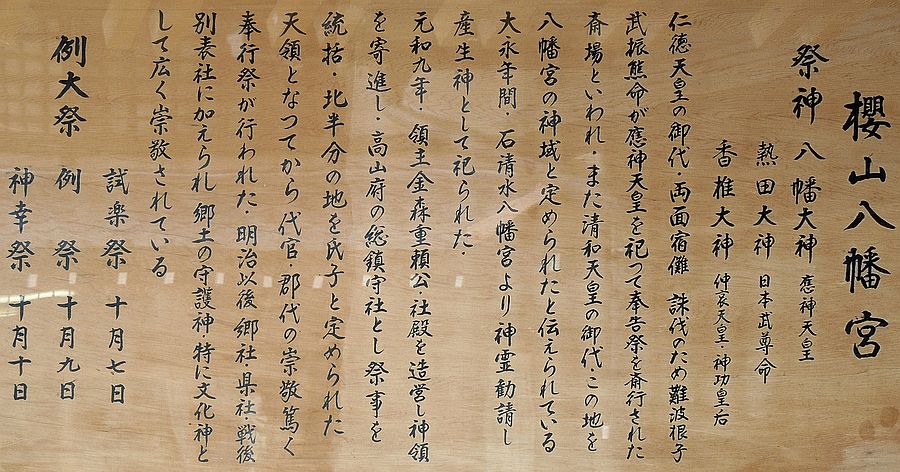 櫻山八幡宮
祭神 八幡大神 應神天皇
熱田大神 日本武尊命
香椎大神 仲哀天皇・神功皇后
仁徳天皇の御代・両面宿儺 誅伐のため難波根子
武振熊命が應神天皇を祀つて奉告祭を斎行された
斎場といわれ・また清和天皇の御代、この地を
八幡宮の神域と定められたと伝えられている
大永年間・石清水八幡宮より神霊勧請し
産生神として祀られた・
元和九年・領主金森重頼公社殿を造営し神領
を寄進し・高山府の総鎮守社とし祭事を
統括・北半分の地を氏子と定められた
天領となつてから代官 郡代の崇敬篤く
奉行祭が行われた・明治以後郷社・県社・戦後
別表社に加えられ 郷土の守護神・特に文化神と
して広く崇敬されている
例大祭
試楽祭 十月七日
例祭 十月九日
神幸祭 十月十日